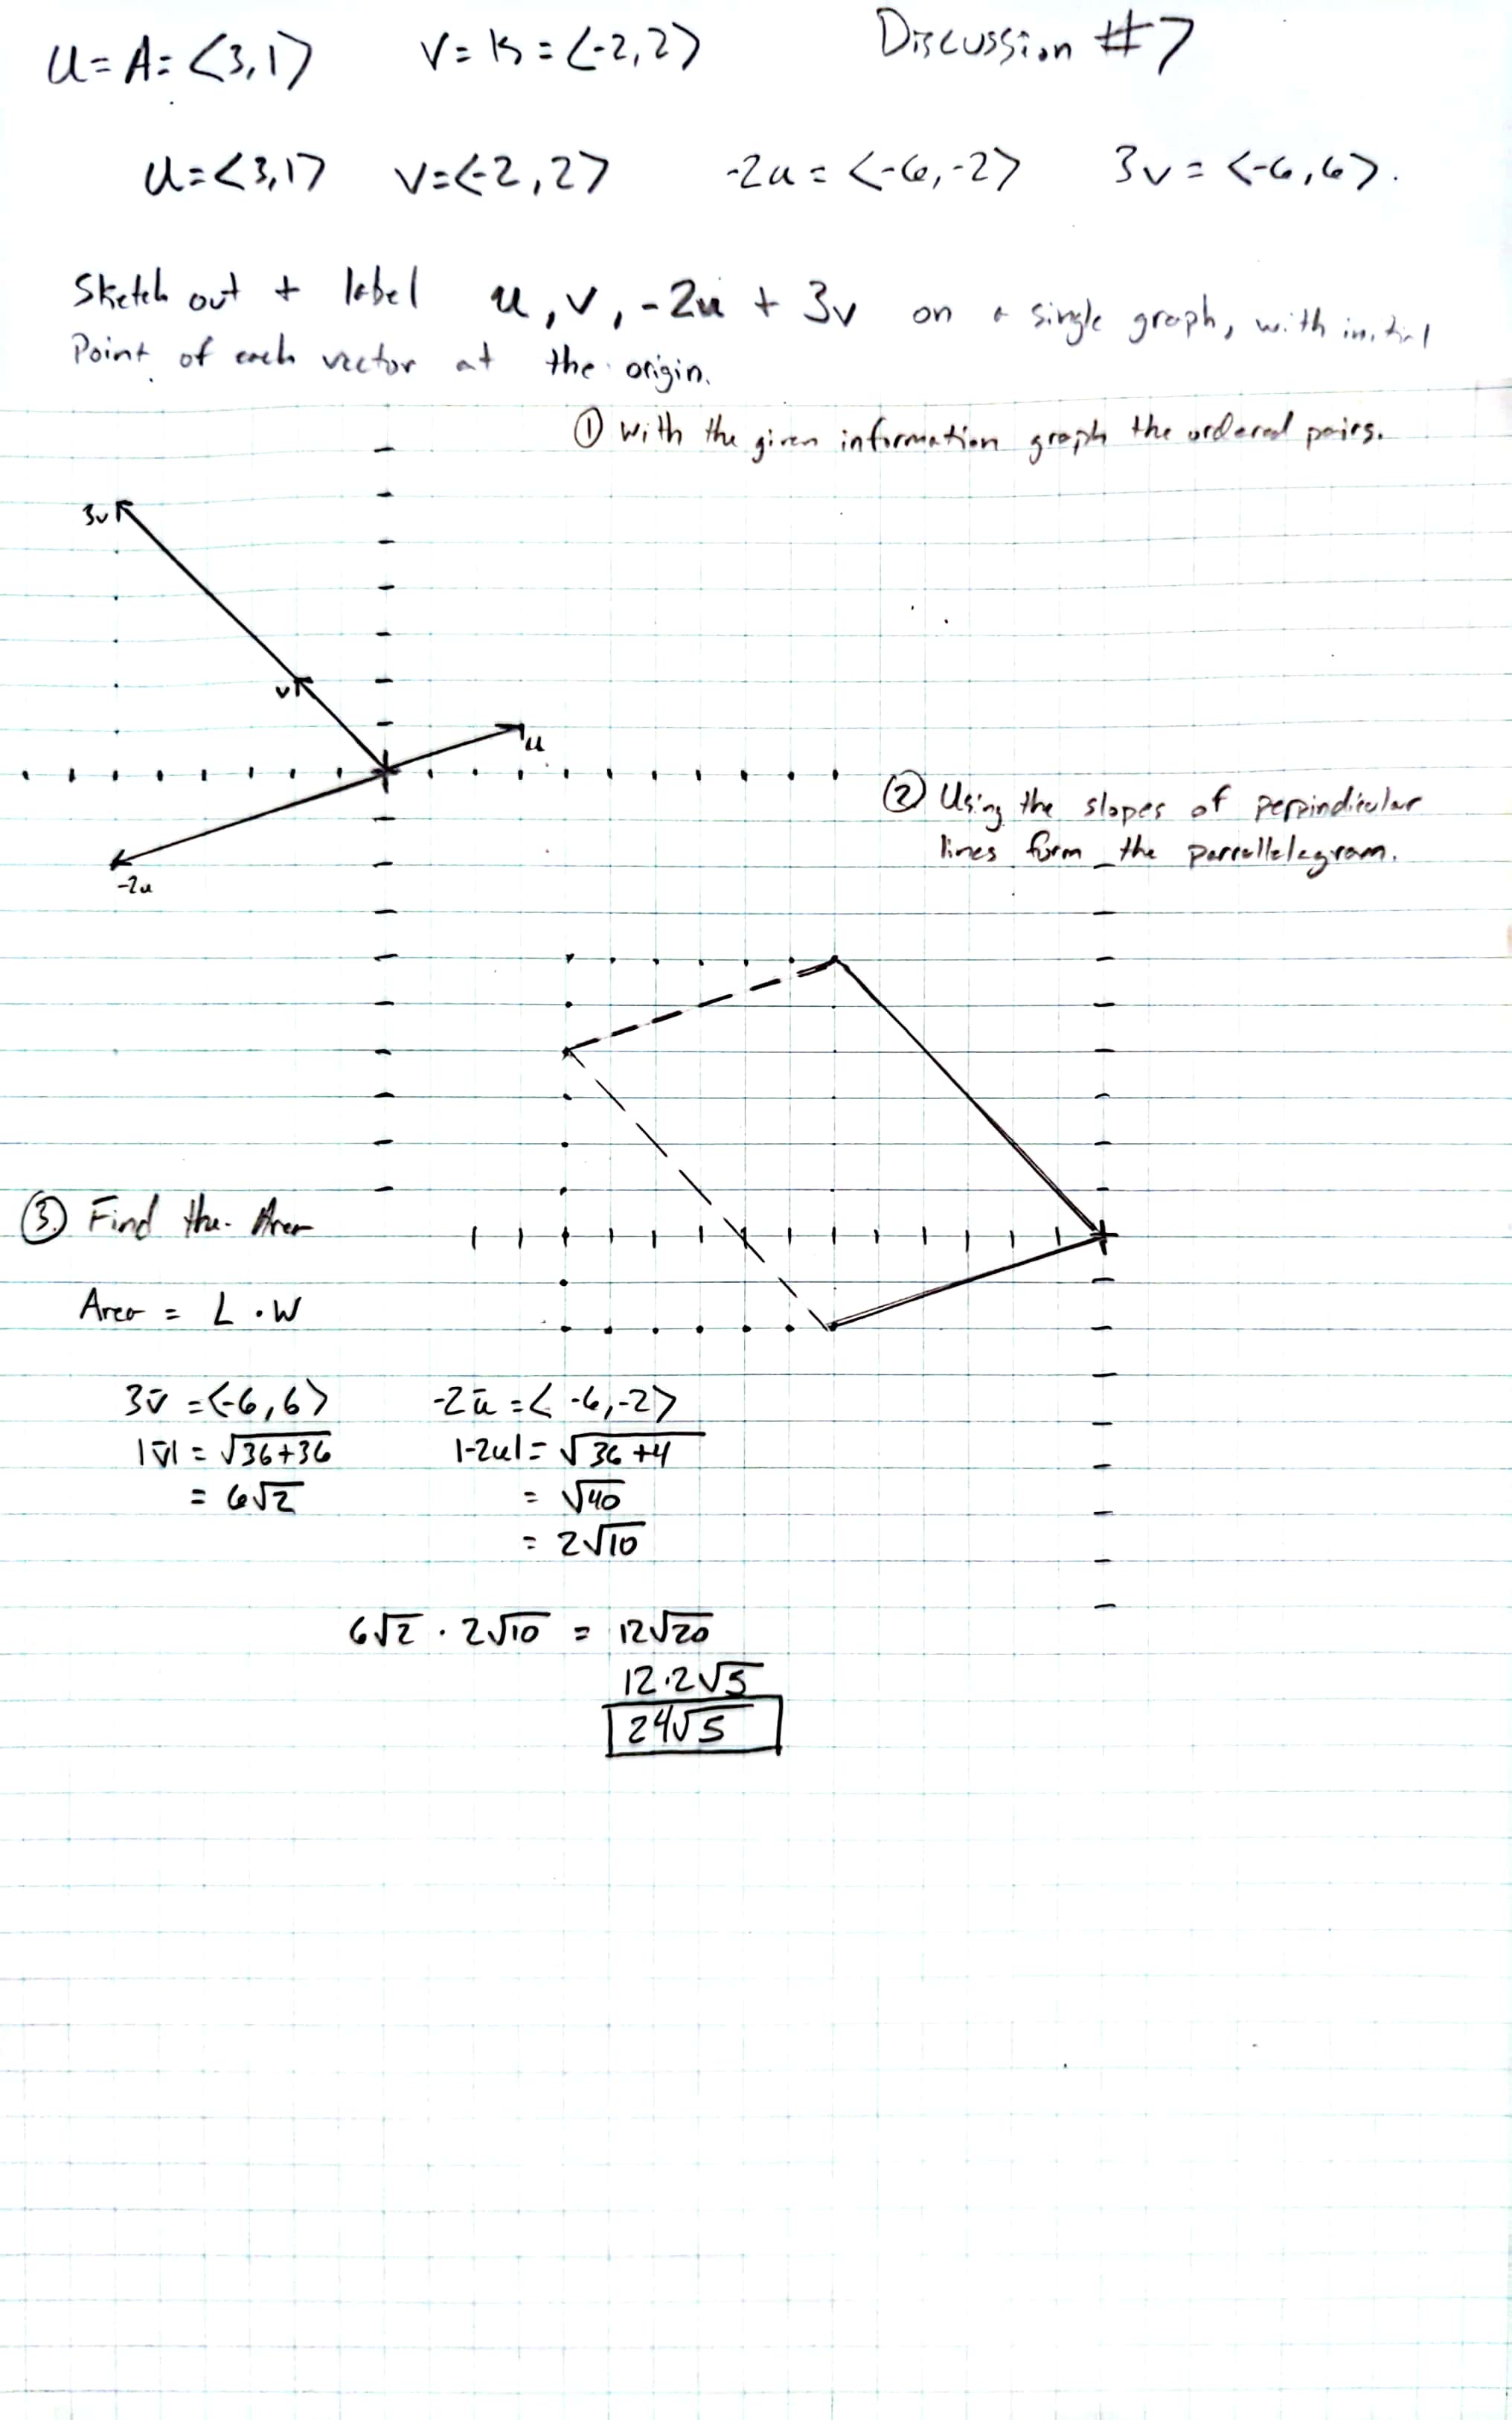 U = A = <3,1> V = B = <-2,2> Discussion #7
U = <3,1> V = <-2,2> -2u = <-6,-2> 3v = <-6,6>.
Sketch out + label u, v, -2u + 3v on a single graph, with initial
Point of each vector at the origin.
① With the given information graph the ordered pairs.
3v
v
u
-2u
② Using the slopes of perpindicular
lines form the parrallelegram.
③ Find the Area
Area = L · W
3v̄ = <-6,6> -2ū = <-6,-2>
|v̄| = √36+36 |-2u| = √36+4
= 6√2 = √40
= 2√10
6√2 · 2√10 = 12√20
12·2√5
24√5